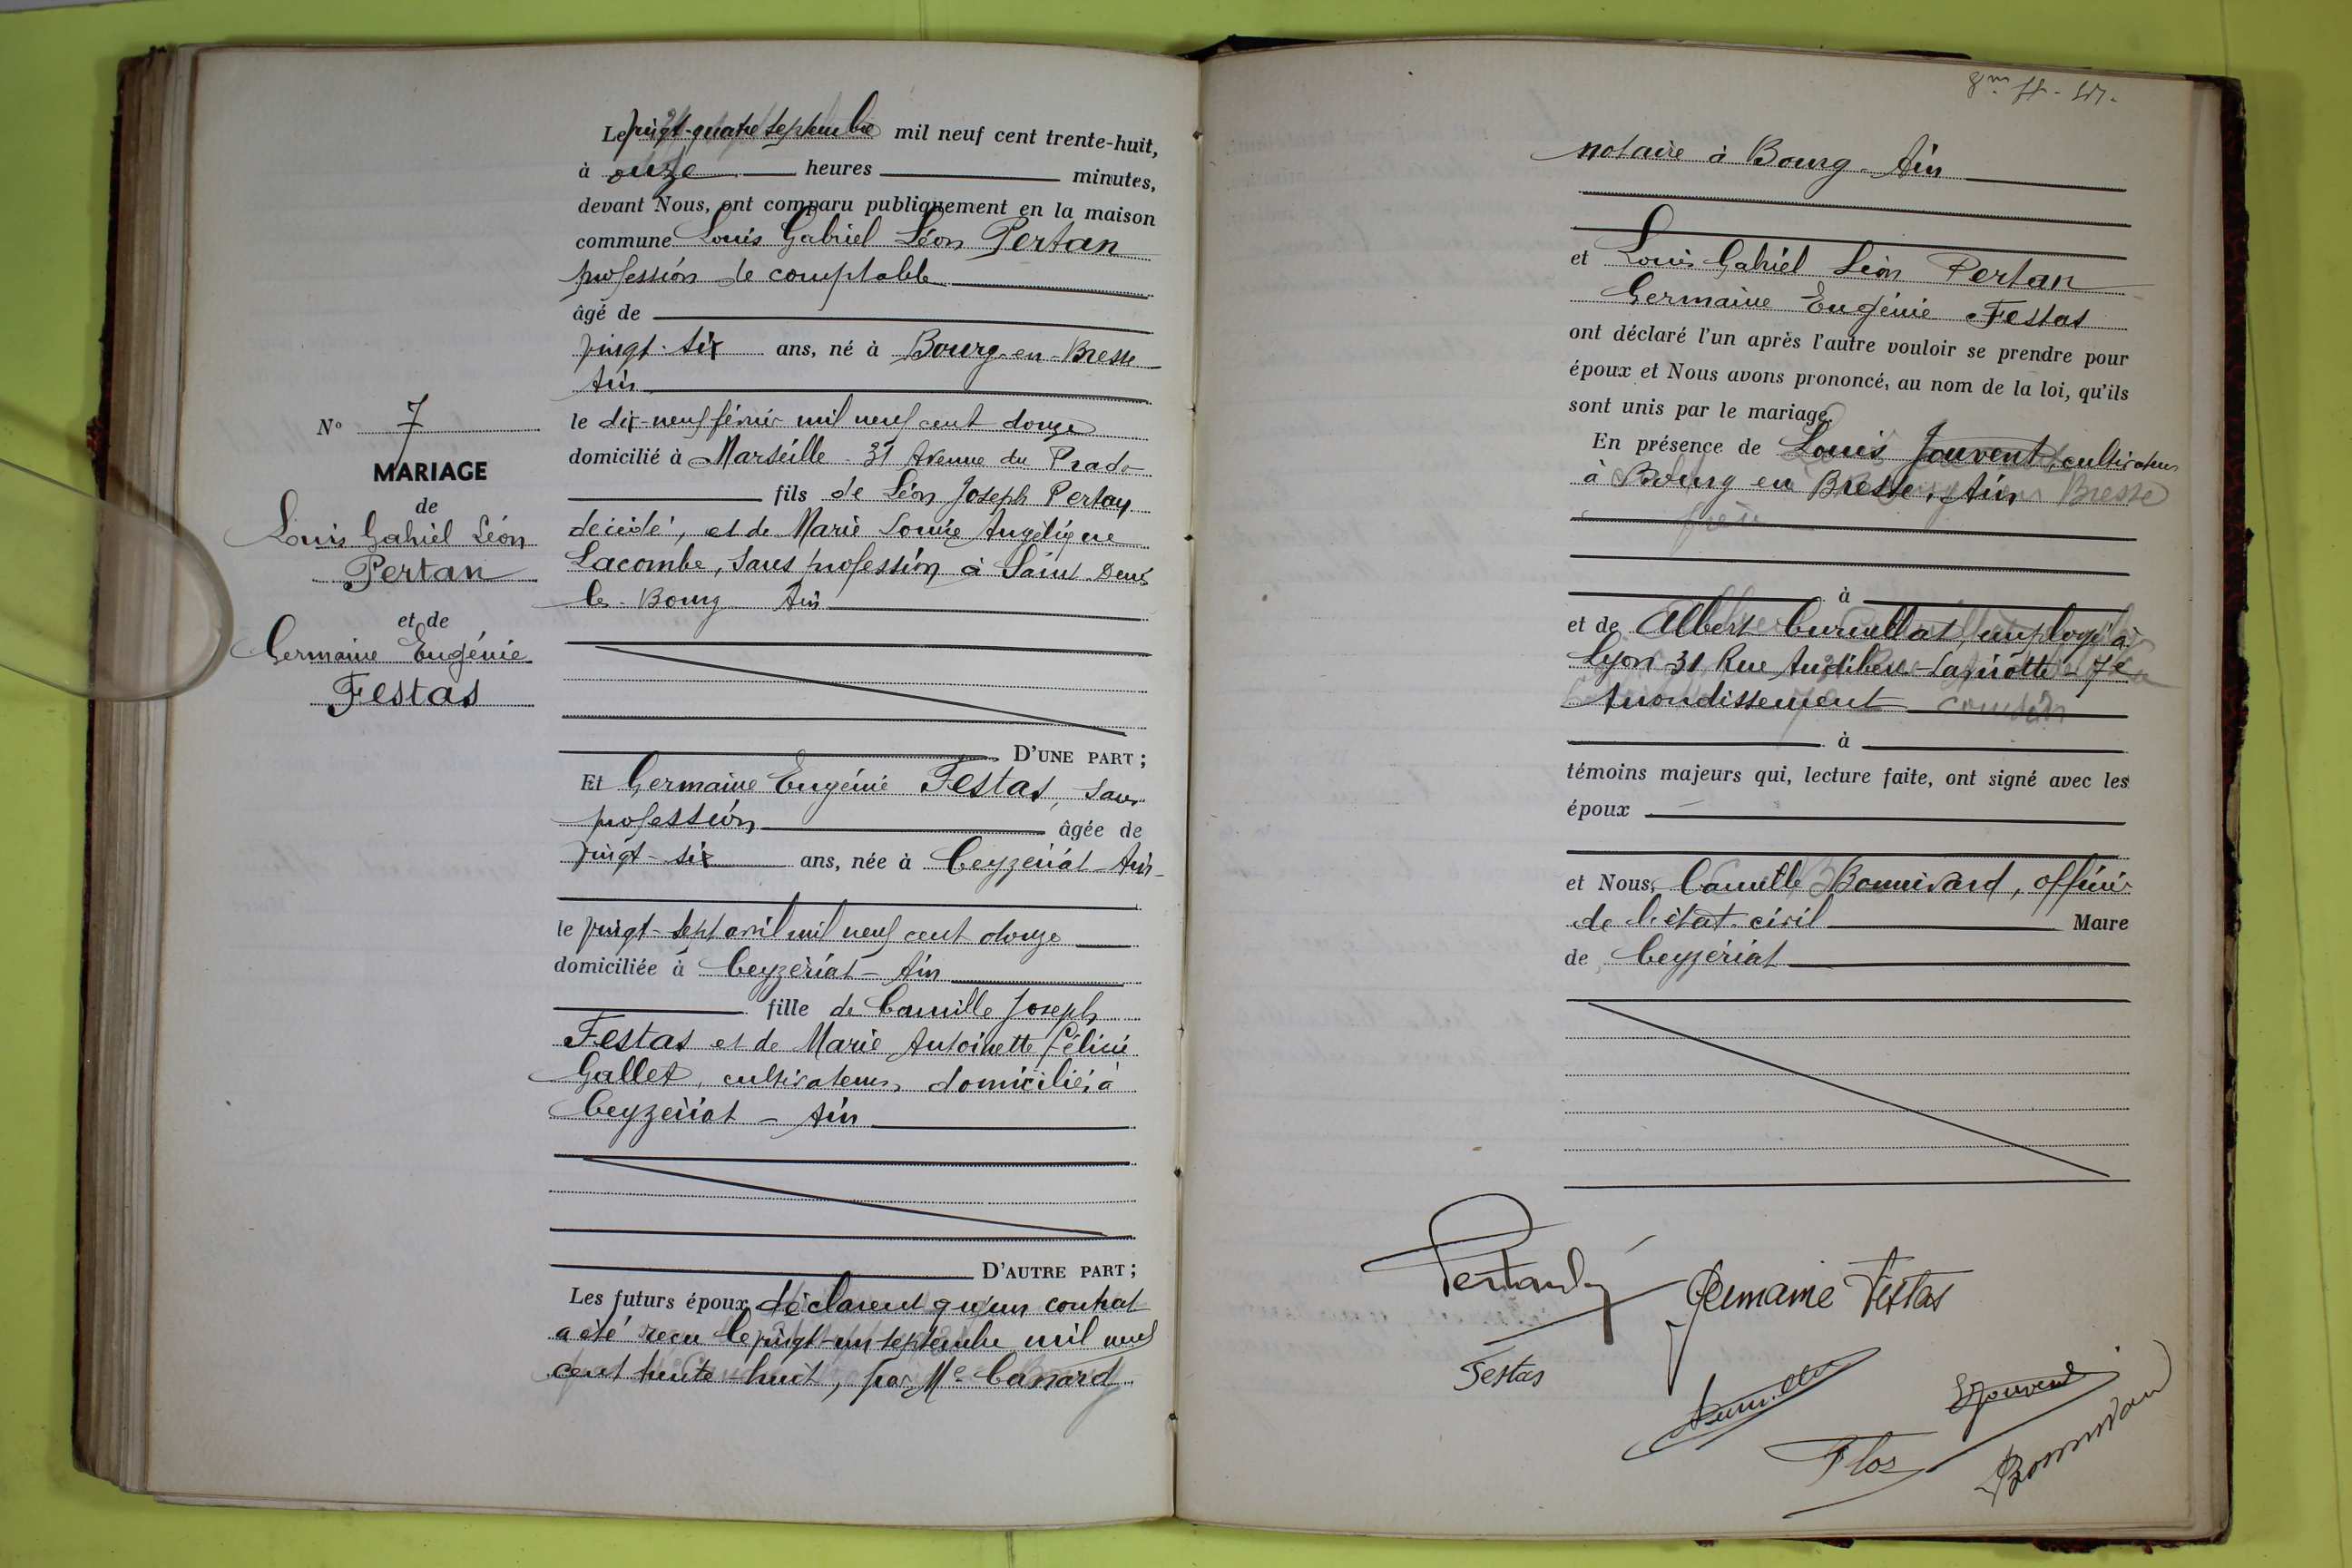 N° 7
MARIAGE
de
Louis Gabriel Léon
Pertan
et de
Germaine Eugénie
Festas
Le vingt-quatre septembre mil neuf cent trente-huit,
à onze heures minutes,
devant Nous, ont comparu publiquement en la maison
commune Louis Gabriel Léon Pertan
profession de comptable
âgé de
vingt-six ans, né à Bourg-en-Bresse
Ain
le dix-neuf février mil neuf cent douze
domicilié à Marseille 31 Avenue du Prado
fils de Léon Joseph Pertan
décédé, et de Marie Louise Angélique
Lacombe, sans profession à Saint Denis
le Bourg Ain
D'UNE PART;
Et Germaine Eugénie Festas, sans
profession âgée de
vingt-six ans, née à Ceyzériat Ain
le vingt-sept avril mil neuf cent douze
domiciliée à Ceyzériat - Ain
fille de Camille Joseph
Festas et de Marie Antoinette Félicie
Gallet, cultivateurs, domiciliés à
Ceyzériat - Ain
D'AUTRE PART;
Les futurs époux déclarent qu'un contrat
a été reçu le vingt-un septembre mil neuf
cent trente-huit, par Me Canard
notaire à Bourg Ain
et Louis Gabriel Léon Pertan
Germaine Eugénie Festas
ont déclaré l'un après l'autre vouloir se prendre pour
époux et Nous avons prononcé, au nom de la loi, qu'ils
sont unis par le mariage.
En présence de Louis Jouvent, cultivateur
à Bourg en Bresse, Ain
à
et de Albert employé à
Lyon 31 Rue 7e
Arrondissement
à
témoins majeurs qui, lecture faite, ont signé avec les
époux
et Nous, Camille Bonnivard, officier
de l'état civil Maire
de Ceyzériat
Germaine Festas
Festas
Jouvent
Flos
Bonnivard